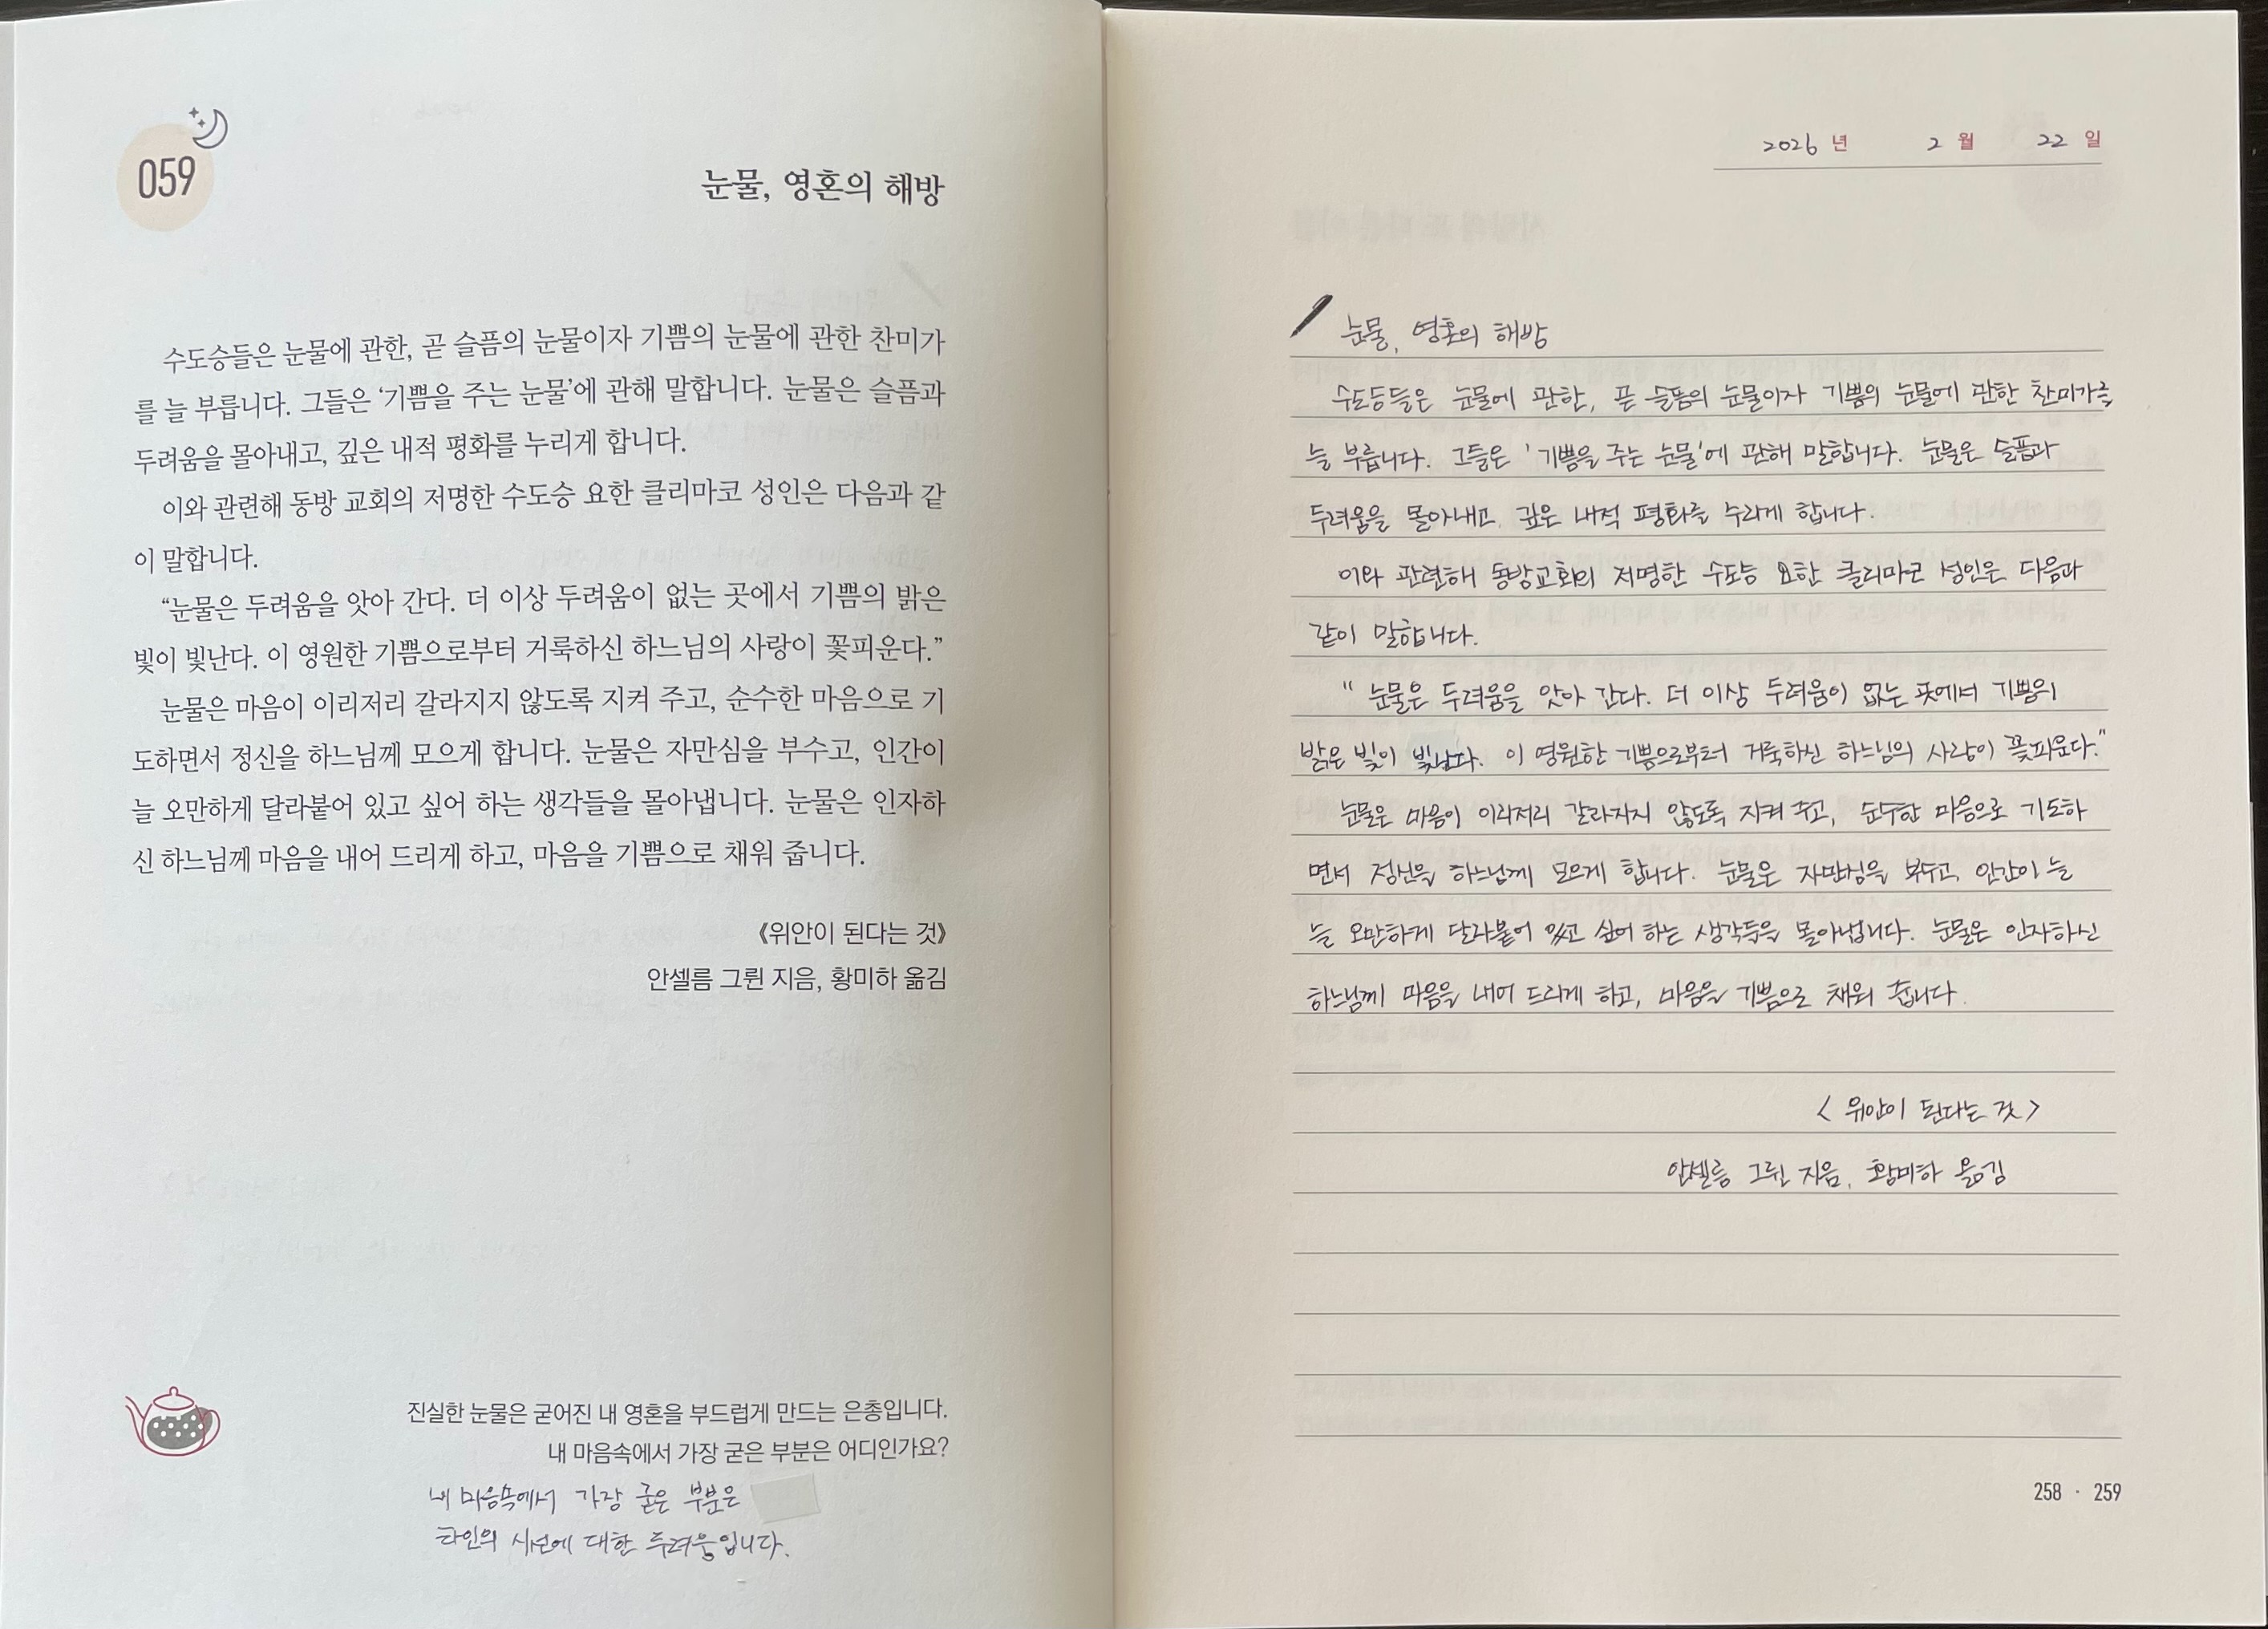 059
눈물, 영혼의 해방
수도승들은 눈물에 관한, 곧 슬픔의 눈물이자 기쁨의 눈물에 관한 찬미가
를 늘 부릅니다. 그들은 ‘기쁨을 주는 눈물’에 관해 말합니다. 눈물은 슬픔과
두려움을 몰아내고, 깊은 내적 평화를 누리게 합니다.
이와 관련해 동방 교회의 저명한 수도승 요한 클리마코 성인은 다음과 같
이 말합니다.
“눈물은 두려움을 앗아 간다. 더 이상 두려움이 없는 곳에서 기쁨의 밝은
빛이 빛난다. 이 영원한 기쁨으로부터 거룩하신 하느님의 사랑이 꽃피운다.”
눈물은 마음이 이리저리 갈라지지 않도록 지켜 주고, 순수한 마음으로 기
도하면서 정신을 하느님께 모으게 합니다. 눈물은 자만심을 부수고, 인간이
늘 오만하게 달라붙어 있고 싶어 하는 생각들을 몰아냅니다. 눈물은 인자하
신 하느님께 마음을 내어 드리게 하고, 마음을 기쁨으로 채워 줍니다.
《위안이 된다는 것》
안셀름 그륀 지음, 황미하 옮김
진실한 눈물은 굳어진 내 영혼을 부드럽게 만드는 은총입니다.
내 마음속에서 가장 굳은 부분은 어디인가요?
내 마음속에서 가장 굳은 부분은
타인의 시선에 대한 두려움입니다.
2026 년 2 월 22 일
눈물, 영혼의 해방
수도승들은 눈물에 관한, 곧 슬픔의 눈물이자 기쁨의 눈물에 관한 찬미가를
늘 부릅니다. 그들은 '기쁨을 주는 눈물'에 관해 말합니다. 눈물은 슬픔과
두려움을 몰아내고, 깊은 내적 평화를 누리게 합니다.
이와 관련해 동방교회의 저명한 수도승 요한 클리마코 성인은 다음과
같이 말합니다.
" 눈물은 두려움을 앗아 간다. 더 이상 두려움이 없는 곳에서 기쁨의
밝은 빛이 빛난다. 이 영원한 기쁨으로부터 거룩하신 하느님의 사랑이 꽃피운다."
눈물은 마음이 이리저리 갈라지지 않도록 지켜 주고, 순수한 마음으로 기도하
면서 정신을 하느님께 모으게 합니다. 눈물은 자만심을 부수고, 인간이 늘
늘 오만하게 달라붙어 있고 싶어 하는 생각들을 몰아냅니다. 눈물은 인자하신
하느님께 마음을 내어 드리게 하고, 마음을 기쁨으로 채워 줍니다.
< 위안이 된다는 것 >
안셀름 그륀 지음, 황미하 옮김
258 · 259